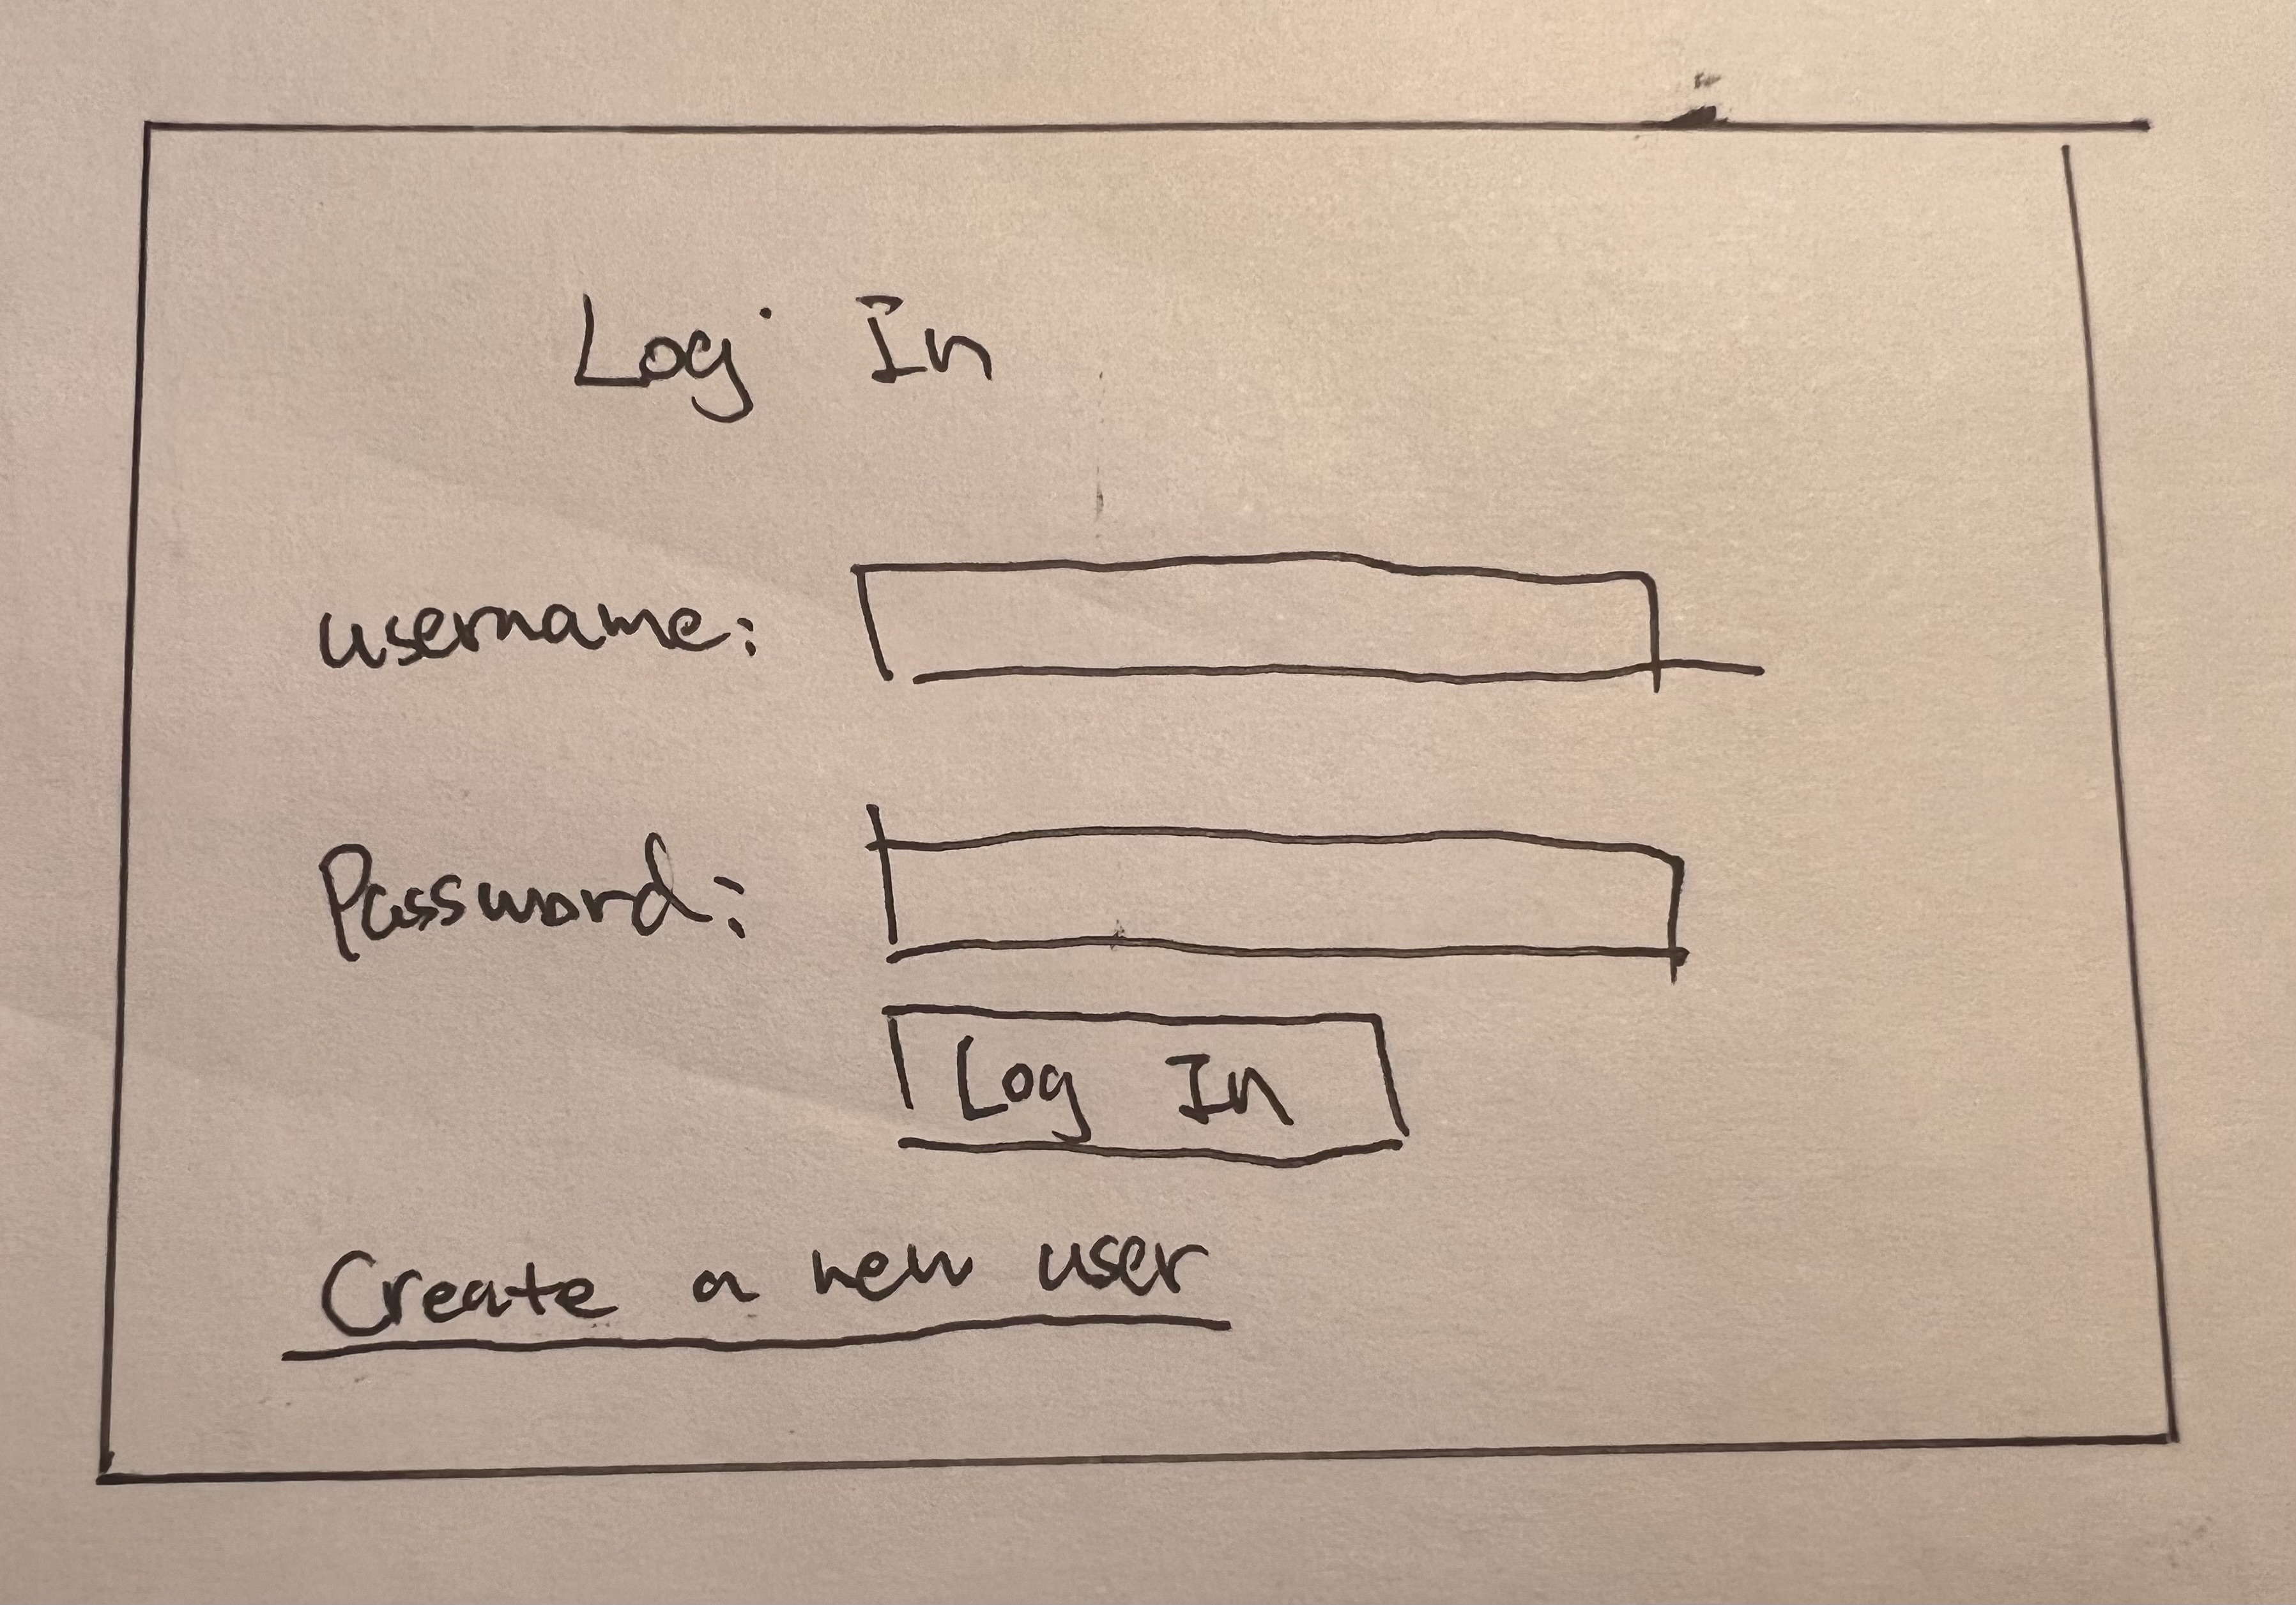 Log In
username:
Password:
Log In
Create a new user